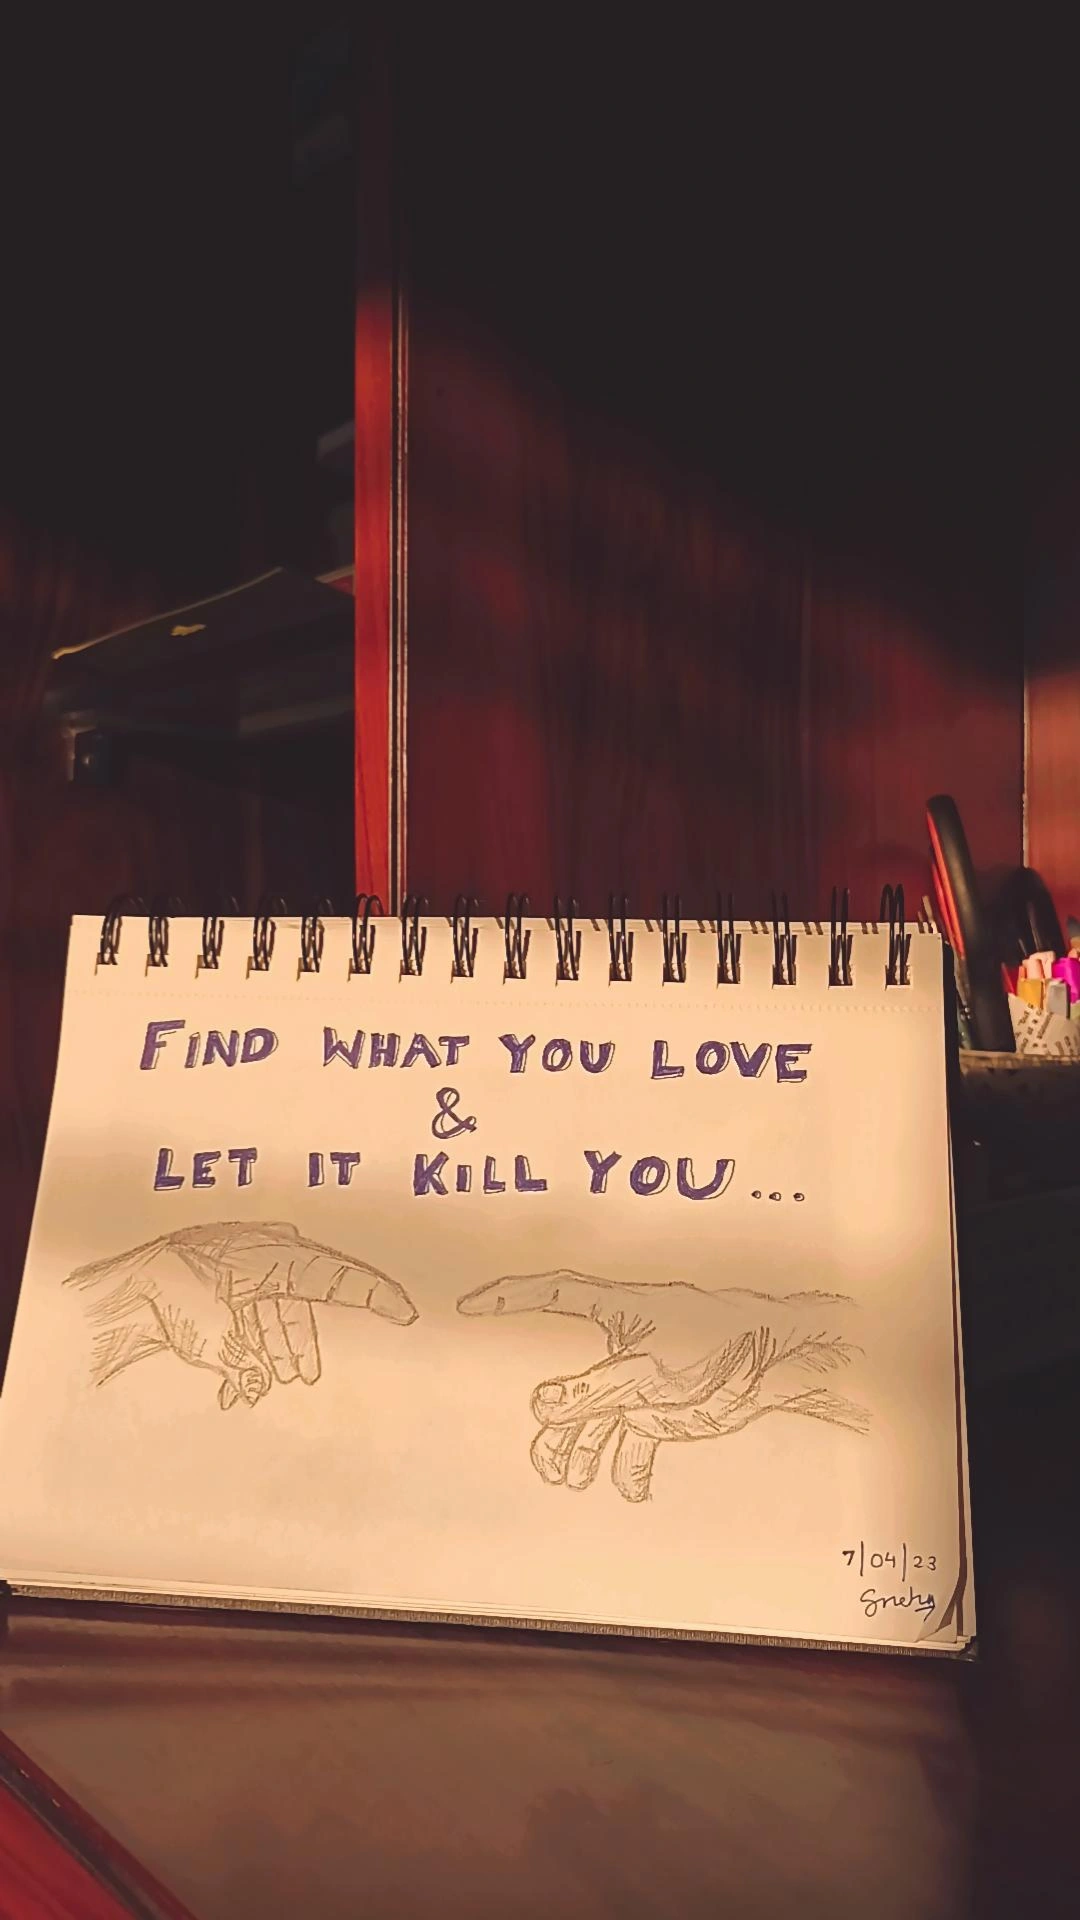 FIND WHAT YOU LOVE
&
LET IT KILL YOU...
7/04/23
Sneha